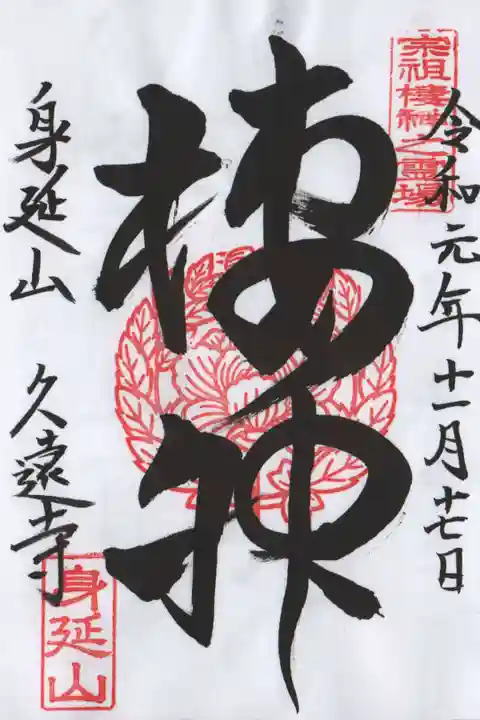 宗祖棲神之霊場
令和元年十一月十七日
棲神
身延山 久遠寺
身延山